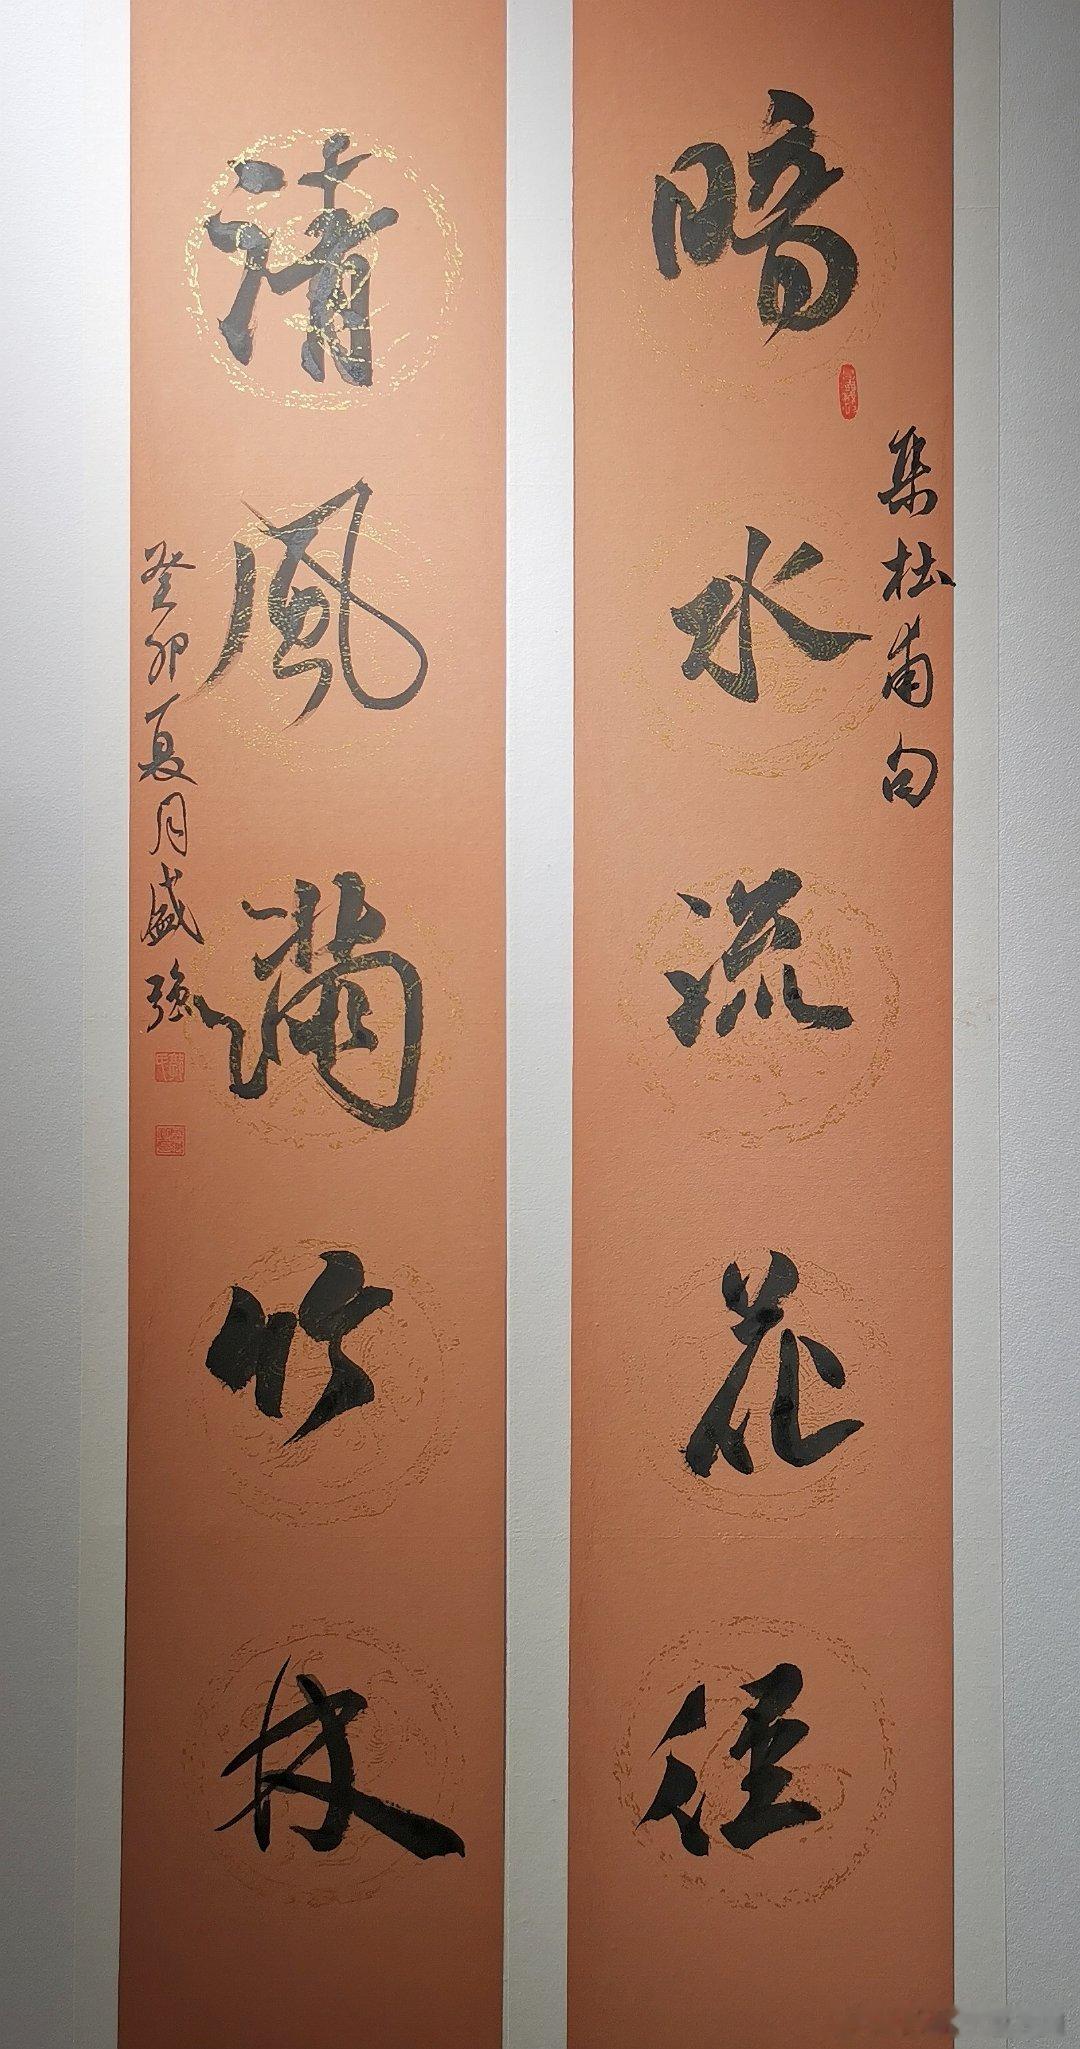 暗水流花徑
集杜甫句
清風滿竹林
癸卯夏月盛強